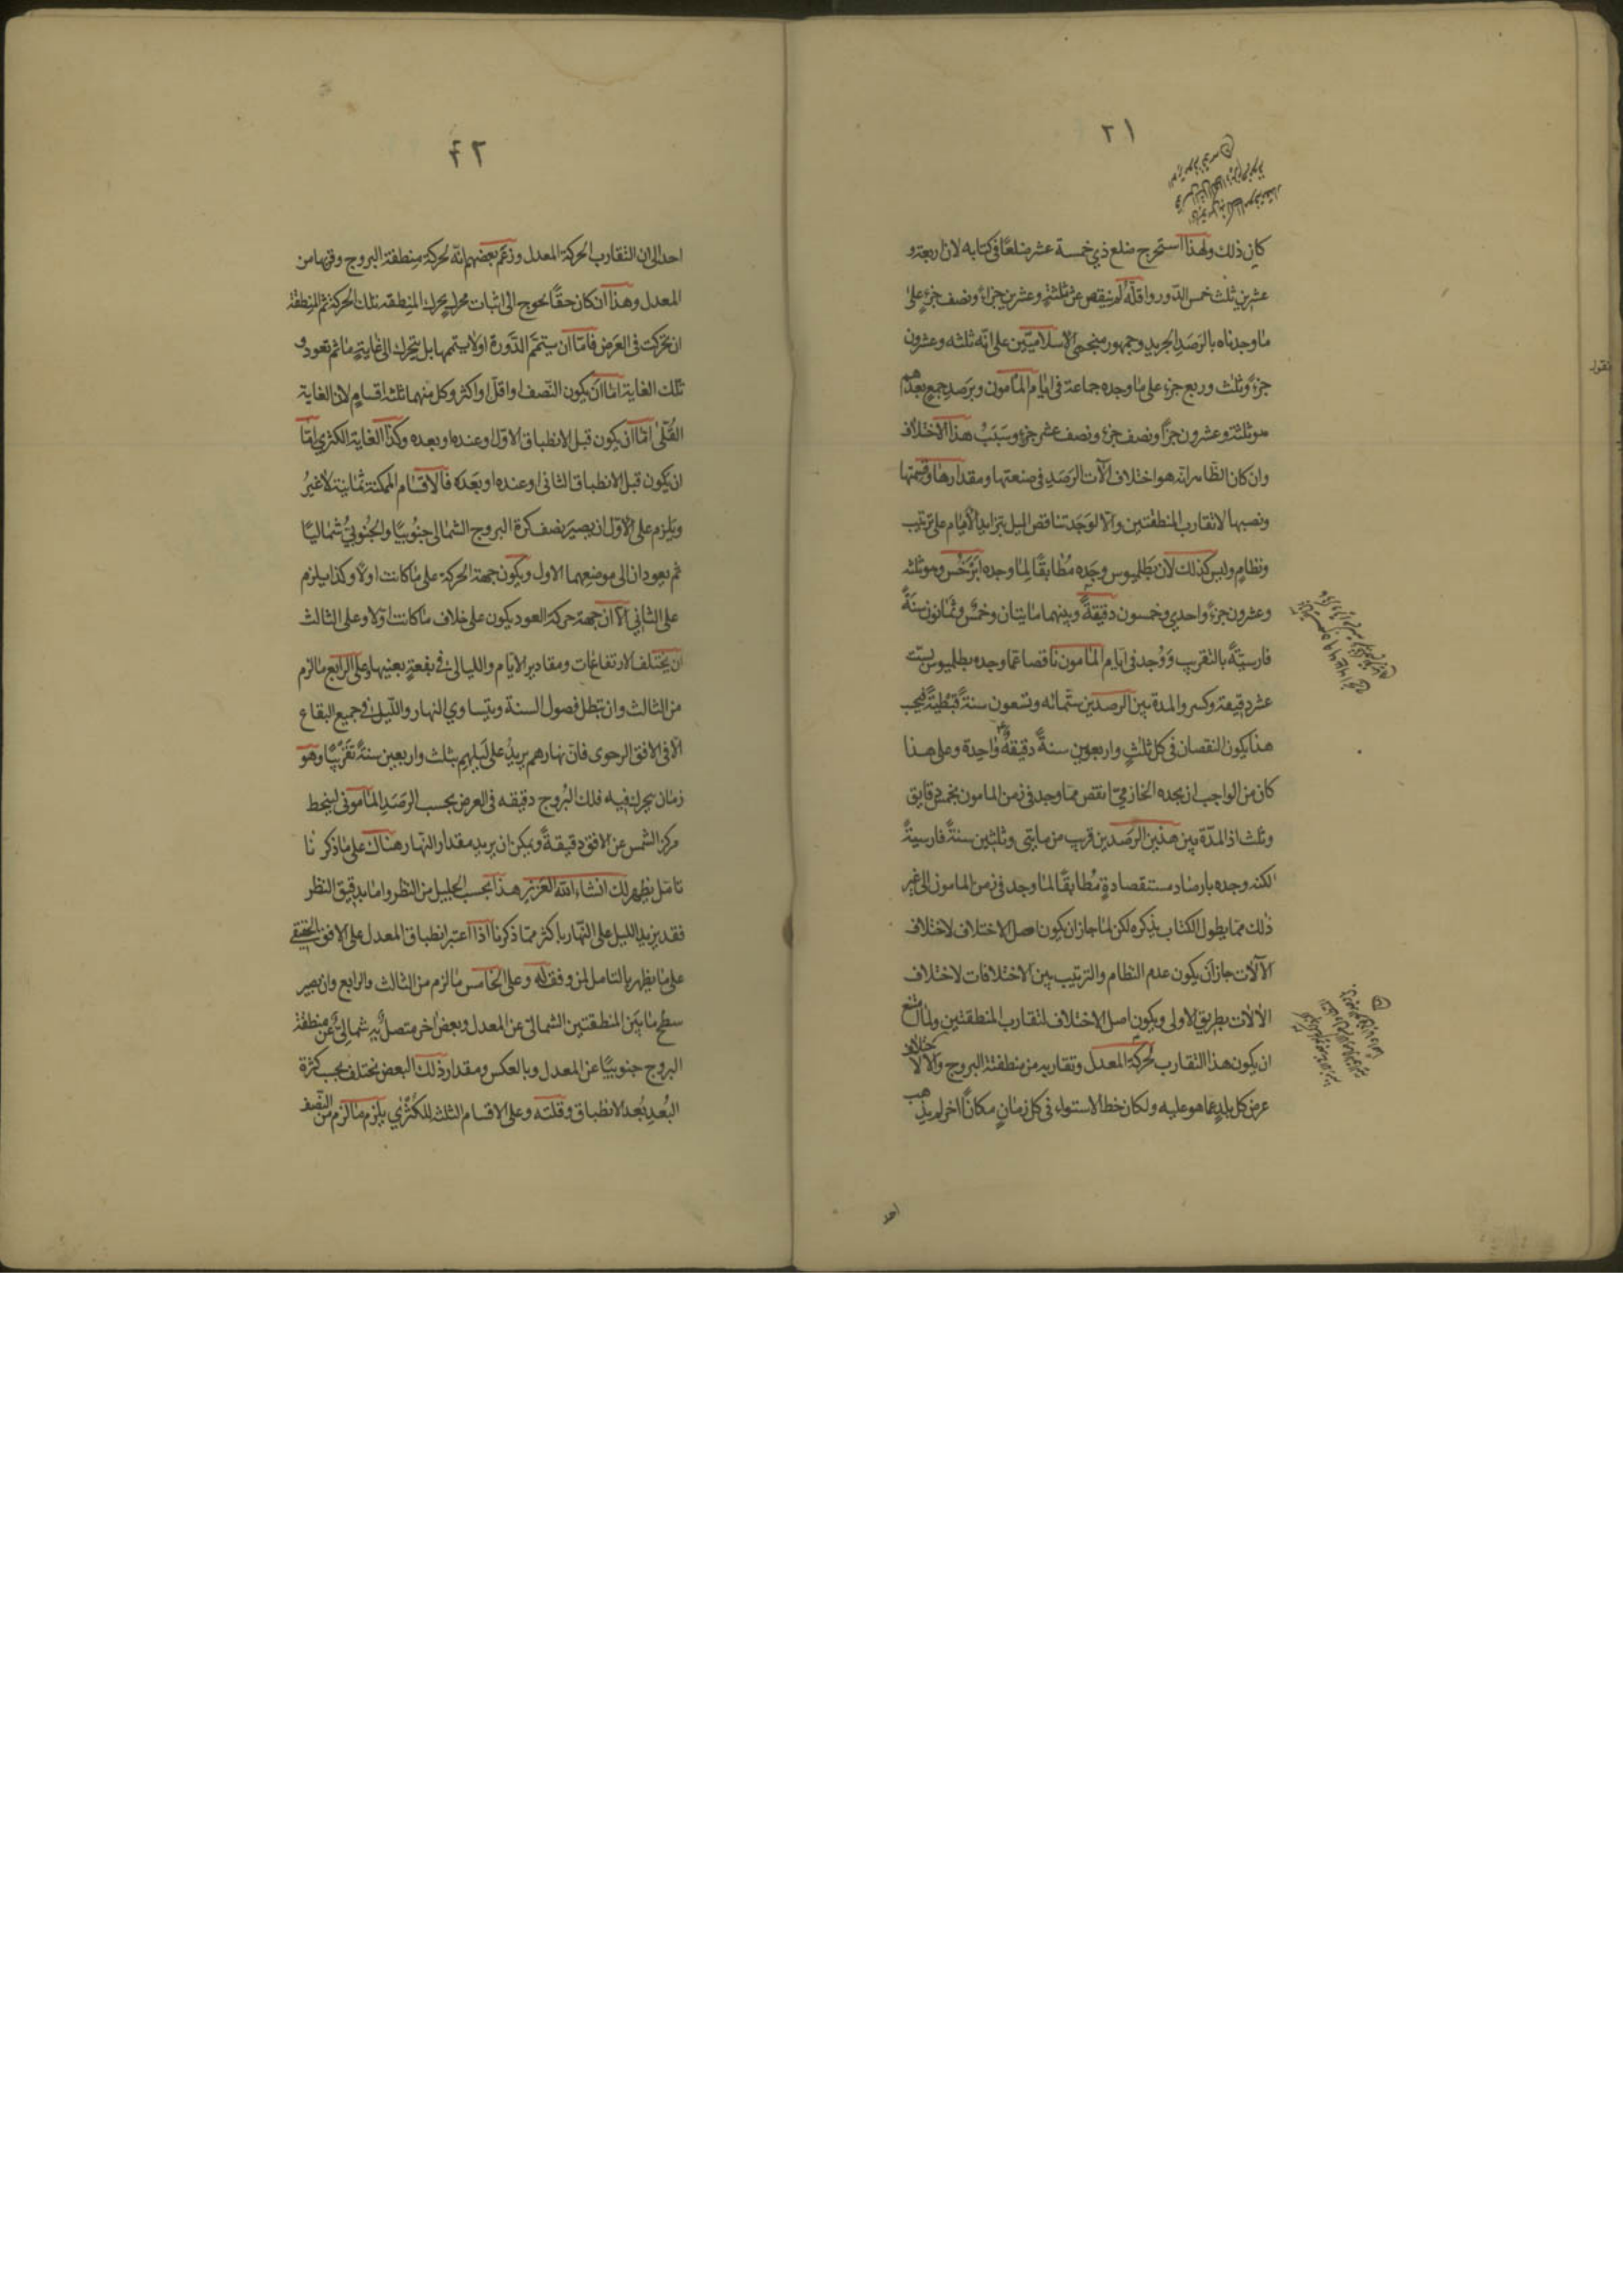 ٢١
كان ذلك ولهذا استخرج ضلع ذي خمسة عشر ضلعًا في كتابه لان اربعة و
عشرين ثلث خمس الدور واقلّه لم ينقص عن ثلثة وعشرين جزاءً ونصف جزءٍ على
ما وجدناه بالرصد الجديد وجمهور منجمي الاسلاميين على انه ثلثه وعشرون
جزءً وثلث وربع جزء على ما وجده جماعة في ايام المأمون وبرصد جمع بعدهم
هو ثلثة وعشرون جزًا ونصف جزء ونصف عشر جزء وسبب هذا الاختلاف
وان كان الظاهر انه هو اختلاف آلات الرصد في صنعتها ومقدارها وقسمتها
ونصبها لا تقارب المنطقتين والا لوجد تناقص الميل بتزايد الايام على ترتيب
ونظامٍ وليس كذلك لان بطلميوس وجده مطابقًا لما وجده ابرخس وهو ثلثه
وعشرون جزءً واحدي وخمسون دقيقةً وبينهما مايتان وخمس وثمانون سنةً
فارسيّةً بالتقريب ووُجد في ايام المامون ناقصا عما وجده بطلميوس بست
عشر دقيقة وكسر والمدة بين الرصدين ستمائه وتسعون سنةً قبطيةً فيجب
هذا يكون النقصان في كل ثلثٍ واربعين سنةً دقيقةً واحدة وعلى هذا
كان من الواجب ان يجده الخازمي انقص مما وجد في زمن المامون بخمس دقايق
وثلث اذ المدّة بين هذين الرصدين قريب من مايتي وثلثين سنةً فارسيةً
لكنه وجده بارصاد مستقصادةٍ مُطابقًا لما وجد في زمن المامون الى غير
ذلك مما يطول الكتاب بذكره لكن لما جاز ان يكون اصل الاختلاف لاختلاف
الآلات جاز ان يكون عدم النظام والترتيب بين الاختلافات لاختلاف
الالات بطريق الاولى ويكون اصل الاختلاف لتقارب المنطقتين ولما امتنع
ان يكون هذا التقارب لحركة المعدل وتقاربه من منطقة البروج والا لاختلف
عرض كل بلدٍ عما هو عليه ولكان خط الاستواء في كل زمانٍ مكانًا اخر لم يذهب
احد
٢٢
احد الى ان التقارب لحركة المعدل وزعم بعضهم انّه لحركة منطقة البروج وقربها من
المعدل وهذا ان كان حقًا يحوج الى اثبات محركٍ يحرك المنطقه بتلك الحركة ثم المنطقة
ان تحركت في العرض فامّا ان يتمّم الدَّورة او لا يتمها بل يتحرك الى غايةٍ ما ثم تعود و
تلك الغاية اما ان يكون النصف او اقل او اكثر وكل منهما ثلثه اقسامٍ لان الغاية
القُلّى اما ان يكون قبل الانطباق الاول او عنده او بعده وكذا الغاية الكثرى امّا
ان يكون قبل الانطباق الثانى او عنده او بعده فالاقسام الممكنة ثمانية لا غيرُ
ويلزم على الاول ان يصير نصف كرة البروج الشمالى جنوبيًا والجنوبيُّ شماليًا
ثم يعودان الى موضعهما الاول ويكون جهة الحركة على ما كانت اولًا وكذا يلزم
على الثاني الا ان جهة حركة العود يكون على خلاف ما كانت اولا وعلى الثالث
ان يختلف الارتفاعات ومقادير الايام والليالى في بقعةٍ بعينها وعلى الرابع ما لزم
من الثالث وان تبطل فصول السنة ويتساوي النهار والليل في جميع البقاع
الّا في الافق الرحوى فان نهارهم يزيد على ليلهم بثلث واربعين سنةً تقريبًا وهو
زمان يحرك فيه فلك البُروج دقيقه في العرض بحسب الرصد المأموني لينحط
مركز الشمس عن الافق دقيقةً ويمكن ان يزيد مقدار النّهار هناك على ما ذكرنا
تامّل يظهر لك انشاء الله العزيز هذا بحسب الجليل من النظر واما بدقيق النظر
فقد يزيد الليل على النّهار باكثر مما ذكرنا اذا اعتبر انطباق المعدل على الافق الحقيقي
على ما يظهر بالتامل لمن وفق له وعلى الخامس ما لزم من الثالث والرابع وان يصير
سطح ما بين المنطقتين الشمالى عن المعدل وبعض اخر متصل به شماليّ عن منطقة
البروج جنوبيًا عن المعدل وبالعكس ومقدار ذلك البعض يختلف بحسب كثرة
البُعدِ بُعد الانطباق وقلته وعلى الاقسام الثلثه للكُثرى يلزم ما لزم من النصف